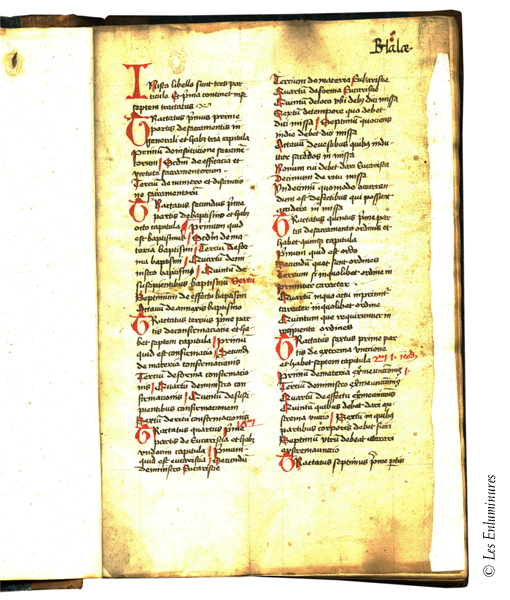 In isto libello sunt tres par
ticule Et prima continet in se
septem tractatus
Tractatus primus prime
partis de sacramentis in
generali et habet tria capitula
Primum de institucione sacram
entorum Secundum de efficatia et
virtute sacramentorum
Tercium de numero et distinctio
ne sacramentorum
Tractatus secundus prime
partis de baptismo et habet
octo capitula Primum quid
est baptismus Secundum de ma
teria baptismi Tercium de for
ma baptismi Quartum de mi
nistro baptismi Quintum de
suscipientibus baptismum Sextum
Septimum de effectu baptismi
Octavum de baptismo
Tractatus tercius prime par
tis de confirmacione et ha
bet septem capitula Primum
quid est confirmacio Secundum
de materia confirmacionis
Tercium de forma confirmacio
nis Quartum de ministro con
firmacionis Quintum de susci
pientibus confirmacionem
Tractatus quartus prime
partis de Eucaristia et habet
undecim capitula Primum
quid est eucaristia Secundum
de ministro Eucaristie
Tercium de materia Eukaristie
Quartum de forma Eucaristie
Quintum de loco ubi debet dici missa
Sextum de tempore quo debet
dici missa Septimum quociens
in die debet dici missa
Octavum de vestibus quibus indu
itur sacerdos in missa
Nonum cui debet dari Eucaristia
Decimum de ritu missa
Undecimum quomodo
dum est defectibus qui possunt
accidere in missa
Tractatus quintus prime par
tis de sacramento ordinis et
habet quinque capitula
Primum quid est ordo
Secundum quot sunt ordines
Tercium si in quolibet ordine in
primitur caracter
Quartum in quo actu inprimitur
caracter in quolibet ordine
Quintum que requiruntur in
recipiente ordines
Tractatus sextus prime par
tis de extrema unctione
et habet septem capitula
Primum de materia extreme unctionis
Tercium de ministro extreme unctionis
Quartum de effectu extreme unctionis
Quintum quibus debet dari ex
trema unctio Sextum in quibus
partibus corporis debet fieri
Septimum utrum debeat iterari
extrema unctio
Tractatus septimus prime partis
© Les Enluminures